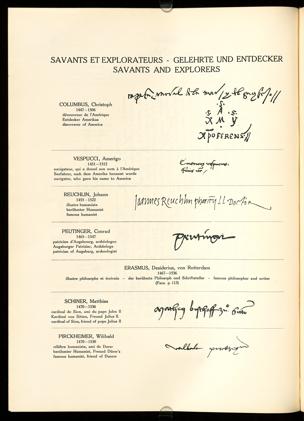 SAVANTS ET EXPLORATEURS - GELEHRTE UND ENTDECKER
SAVANTS AND EXPLORERS
COLUMBUS, Christoph
1447 - 1506
découvreur de l'Amérique
Entdecker Amerikas
discoverer of America
S
S A S
X M Y
XPO FERENS
VESPUCCI, Amerigo
1451 - 1512
navigateur, qui a donné son nom à l'Amérique
Seefahrer, nach dem Amerika benannt wurde
navigator, who gave his name to America
REUCHLIN, Johann
1455 - 1522
illustre humaniste
berühmter Humanist
famous humanist
Joannes Reuchlin
PEUTINGER, Conrad
1465 - 1547
patricien d'Augsbourg, archéologue
Augsburger Patrizier, Archäologe
patrician of Augsburg, archeologist
Peutinger
ERASMUS, Desiderius, von Rotterdam
1467 - 1536
illustre philosophe et écrivain - der berühmte Philosoph und Schriftsteller - famous philosopher and writer
SCHINER, Matthias
1470 - 1536
cardinal de Sion, ami du pape Jules II
Kardinal von Sitten, Freund Julius II
cardinal of Sion, friend of pope Jules II
PIRCKHEIMER, Wilibald
1470 - 1530
célèbre humaniste, ami de Durer
berühmter Humanist, Freund Dürer's
famous humanist, friend of Durer